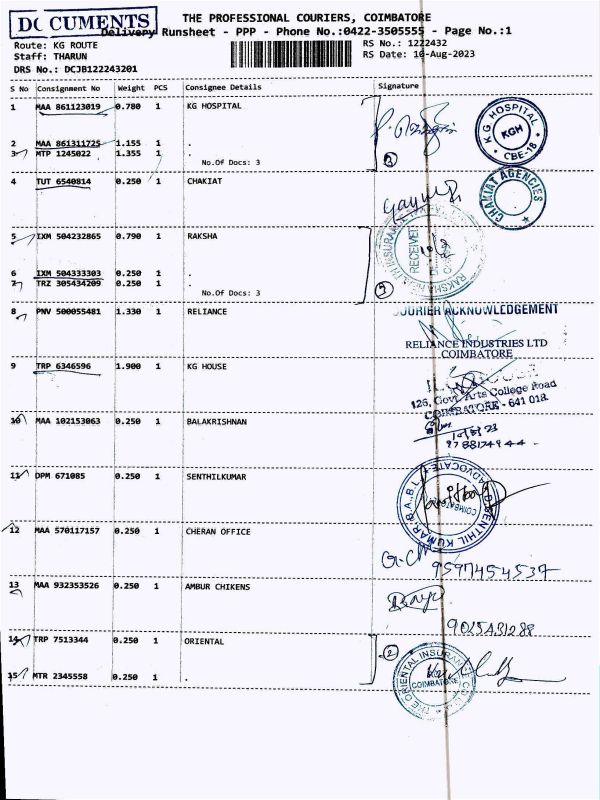 DOCUMENTS
THE PROFESSIONAL COURIERS, COIMBATORE
Delivery Runsheet - PPP - Phone No.:0422-3505555 - Page No.:1
Route: KG ROUTE
Staff: THARUN
DRS No.: DCJB122243201
RS No.: 1222432
RS Date: 10-Aug-2023
S No Consignment No Weight PCS Consignee Details Signature
1 MAA 861123019 0.780 1 KG HOSPITAL
KG HOSPITAL
KGH
CBE-18
2 MAA 861311725 1.155 1 .
3 MTP 1245022 1.355 1 .
No.Of Docs: 3
3
4 TUT 6540814 0.250 1 CHAKIAT
CHAKIAT AGENCIES
5 IXM 504232865 0.790 1 RAKSHA
RECEIVED
6 IXM 504333303 0.250 1 .
7 TRZ 305434209 0.250 1 .
No.Of Docs: 3
8 PNV 500055481 1.330 1 RELIANCE
COURIER ACKNOWLEDGEMENT
RELIANCE INDUSTRIES LTD
COIMBATORE
9 TRP 6346596 1.900 1 KG HOUSE
126, Govt Arts College Road
COIMBATORE - 641 018
10 MAA 102153063 0.250 1 BALAKRISHNAN
10/8/23
9788124944
11 DPM 671085 0.250 1 SENTHILKUMAR
D. SENTHIL KUMAR B.A.,B.L.
ADVOCATE
COIMBATORE
12 MAA 570117157 0.250 1 CHERAN OFFICE
9597454537
13 MAA 932353526 0.250 1 AMBUR CHIKENS
9025431288
14 TRP 7513344 0.250 1 ORIENTAL
2
THE ORIENTAL INSURANCE CO
COIMBATORE
15 MTR 2345558 0.250 1 .